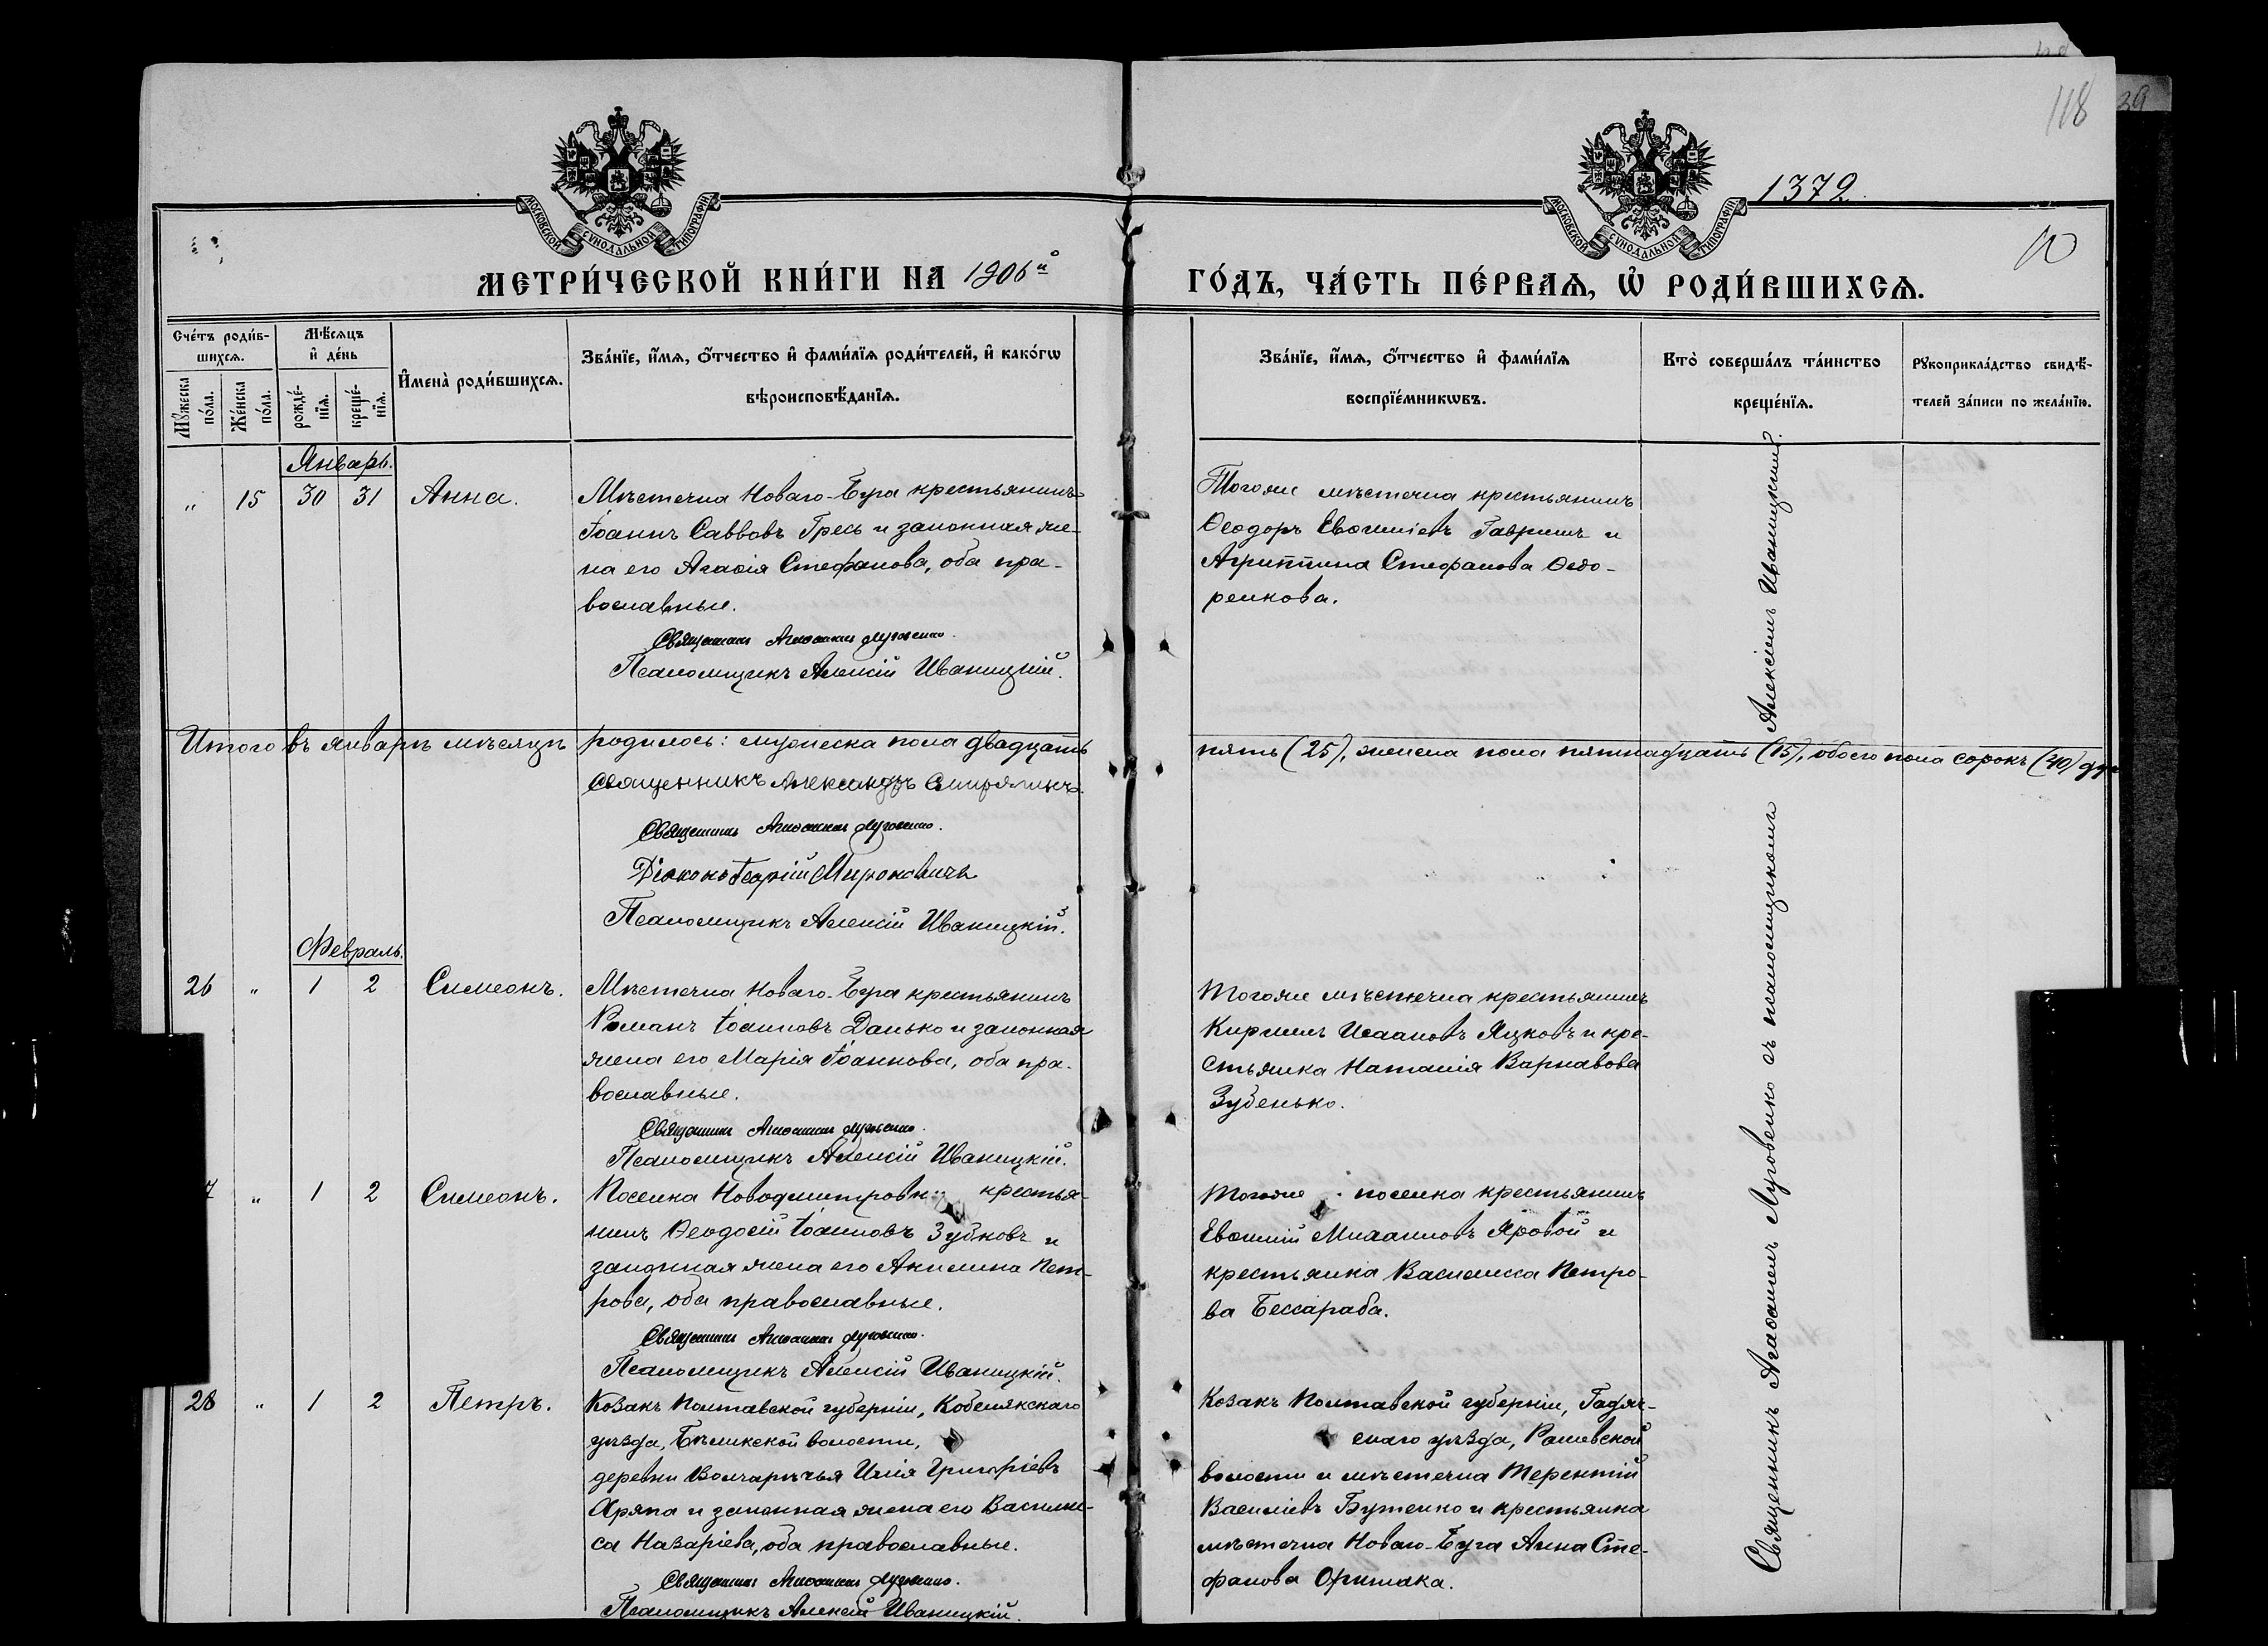 118
39
1372.
МОСКОВСКОЙ СУНОДАЛЬНОЙ ТИПОГРАФІИ
МОСКОВСКОЙ СУНОДАЛЬНОЙ ТИПОГРАФІИ
МЕТРИ́ЧЕСКОЙ КНИ́ГИ НА 1906й
ГО́ДЪ, ЧА́СТЬ ПЕ́РВАѦ, Ѡ РОДИ́ВШИХСѦ.
Сче́тъ роди́в-
шихсѧ.
Мꙋжеска
по́ла.
Же́нска
по́ла.
Мѣ́сѧцъ
и де́нь
рожде́-
нїѧ.
креще́-
нїѧ.
Имена̀ роди́вшихсѧ.
Зва́нїе, и́мѧ, ѻ́тчество и фами́лїѧ роди́телей, и како́гѡ
вѣроисповѣ́данїѧ.
Зва́нїе, и́мѧ, ѻ́тчество и фами́лїѧ
воспрїе́мникѡвъ.
Кто̀ соверша́лъ та́инство
креще́нїѧ.
Рꙋкоприкла́дство свидѣ́-
телей за́писи по жела́нїю.
Январь.
" 15 30 31 Анна.
Мѣстечка Новаго-Буга крестьянинъ
Іоаннъ Саввовъ Гресь и законная же-
на его Агафія Стефанова, оба пра-
вославные.
Священникъ Агафангелъ Луговенко.
Псаломщикъ Алексій Иваницкій.
Тогоже мѣстечка крестьянинъ
Ѳеодоръ Евѳиміевъ Гавришъ и
Агриппина Стефанова Ѳедо-
ренкова.
Итого въ январѣ мѣсяцѣ родилось: мужеска пола двадцать
пять (25), женска пола пятнадцать (15), обоего пола сорокъ (40)
Священникъ Александръ
Священникъ Агафангелъ Луговенко.
Діаконъ Георгій Мироновичъ
Псаломщикъ Алексій Иваницкій.
Февраль.
26 " 1 2 Симеонъ.
Мѣстечка Новаго-Буга крестьянинъ
Романъ Іоанновъ Данько и законная
жена его Марія Іоаннова, оба пра-
вославные.
Священникъ Агафангелъ Луговенко.
Псаломщикъ Алексій Иваницкій.
Тогоже мѣстечка крестьянинъ
Кириллъ Исааковъ Яцковъ и кре-
стьянка Наталія Варнавова
Зубенько.
7 " 1 2 Симеонъ.
Поселка Новодмитровки крестья-
нинъ Ѳеодосій Іоанновъ Зубковъ и
законная жена его Акилина Пет-
рова, оба православные.
Священникъ Агафангелъ Луговенко.
Псаломщикъ Алексій Иваницкій.
Тогоже поселка крестьянинъ
Евѳимій Михаиловъ Яровой и
крестьянка Василисса Петро-
ва Бессараба.
28 " 1 2 Петръ.
Козакъ Полтавской губерніи, Кобелякскаго
уѣзда, Бѣликской волости,
деревни Волчарѣчья Илія Григоріевъ
Аряпа и законная жена его Василис-
са Назаріева, оба православные.
Священникъ Агафангелъ Луговенко.
Псаломщикъ Алексій Иваницкій.
Козакъ Полтавской губерніи, Гадяч-
скаго уѣзда, Рашевской
волости и мѣстечка Терентій
Василіевъ Бутенко и крестьянка
мѣстечка Новаго-Буга Анна Сте-
фанова Оришака.
Священникъ Агафангелъ Луговенко съ псаломщикомъ Алексіемъ Иваницкимъ.